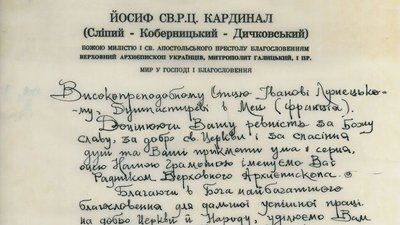 ЙОСИФ СВ.Р.Ц. КАРДИНАЛ
(Сліпий - Коберницький - Дичковський)
БОЖОЮ МИЛІСТЮ І СВ. АПОСТОЛЬСЬКОГО ПРЕСТОЛУ БЛАГОСЛОВЕННЯМ
ВЕРХОВНИЙ АРХИЕПИСКОП УКРАЇНЦІВ, МИТРОПОЛИТ ГАЛИЦЬКИЙ, І ПР.
МИР У ГОСПОДІ І БЛАГОСЛОВЕННЯ
Високопреподобному Отцю Іванові
му, Душпастиреві в Мец (Франція).
Доцінюючи Вашу ревність за Божу
славу, за добро св. Церкви і за спасіння
душ та Ваші прикмети ума і серця,
оцею Нашою грамотою іменуємо Вас
Радником Верховного Архиепископа.
Благаючи в Бога найбагатшого
благословення для дальшої успішної праці
на добро Церкви й Народу, уділюємо Вам